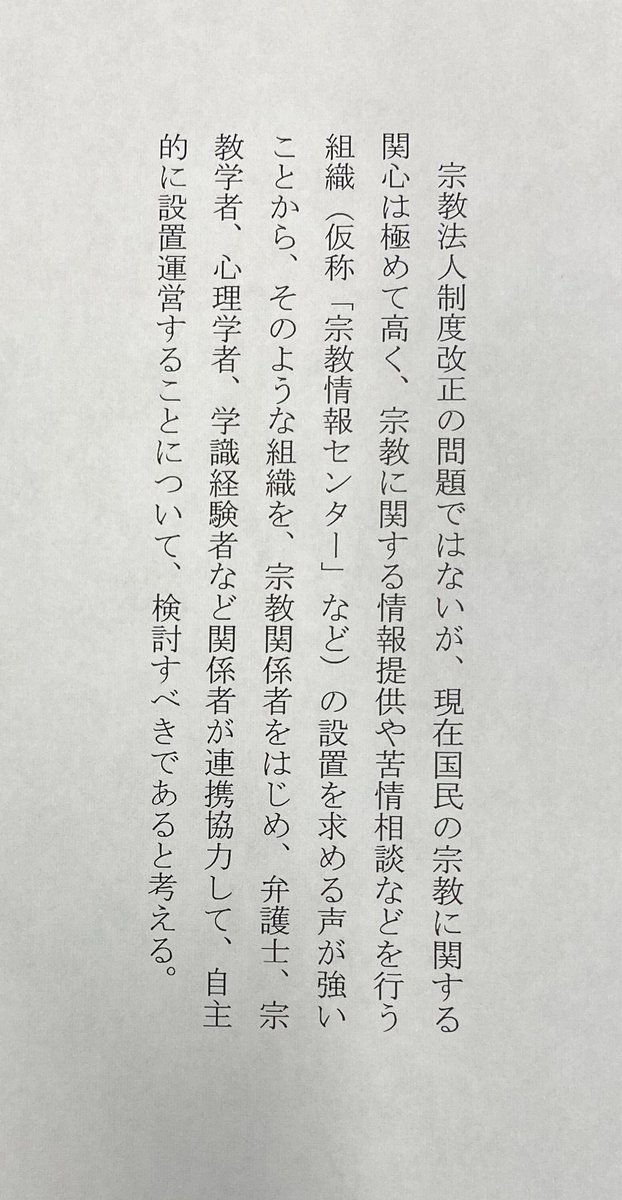 宗教法人制度改正の問題ではないが、現在国民の宗教に関する
関心は極めて高く、宗教に関する情報提供や苦情相談などを行う
組織（仮称「宗教情報センター」など）の設置を求める声が強い
ことから、そのような組織を、宗教関係者をはじめ、弁護士、宗
教学者、心理学者、学識経験者など関係者が連携協力して、自主
的に設置運営することについて、検討すべきであると考える。